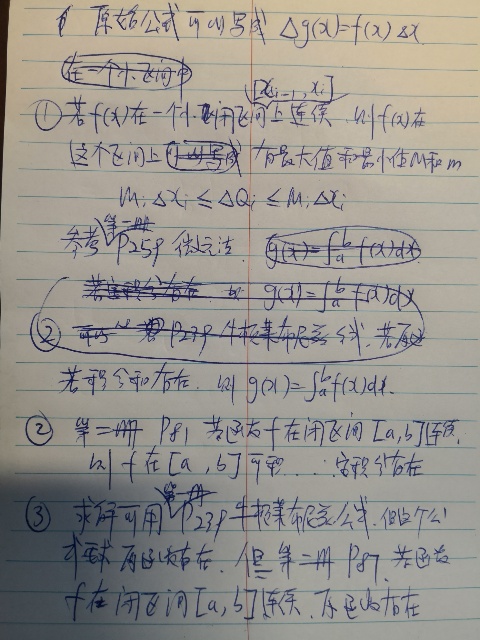 原始公式可以写成 △g(x)=f(x)△x
在一个小区间中
[xi-1, xi]
① 若f(x)在一个小闭区间上连续 则f(x)在
这个区间上 有最大值和最小值M和m
mi△xi ≤ △Qi ≤ Mi△xi
第一册
参考 P259 微元法 g(x)=∫ab f(x)dx
g(x)=∫ab f(x)dx
② P239 牛顿莱布尼兹公式. 若
若积分和存在. 则 g(x)=∫ab f(x)dx.
② 第二册 P81 若函数f在闭区间[a,b]连续,
则 f 在[a,b]可积 ... 定积分存在
第一册
③ 求解可用 P239牛顿莱布尼兹公式. 但这个公
式要求原函数存在. 但是第二册 P87. 若函数
f在闭区间[a,b]连续. 原函数存在